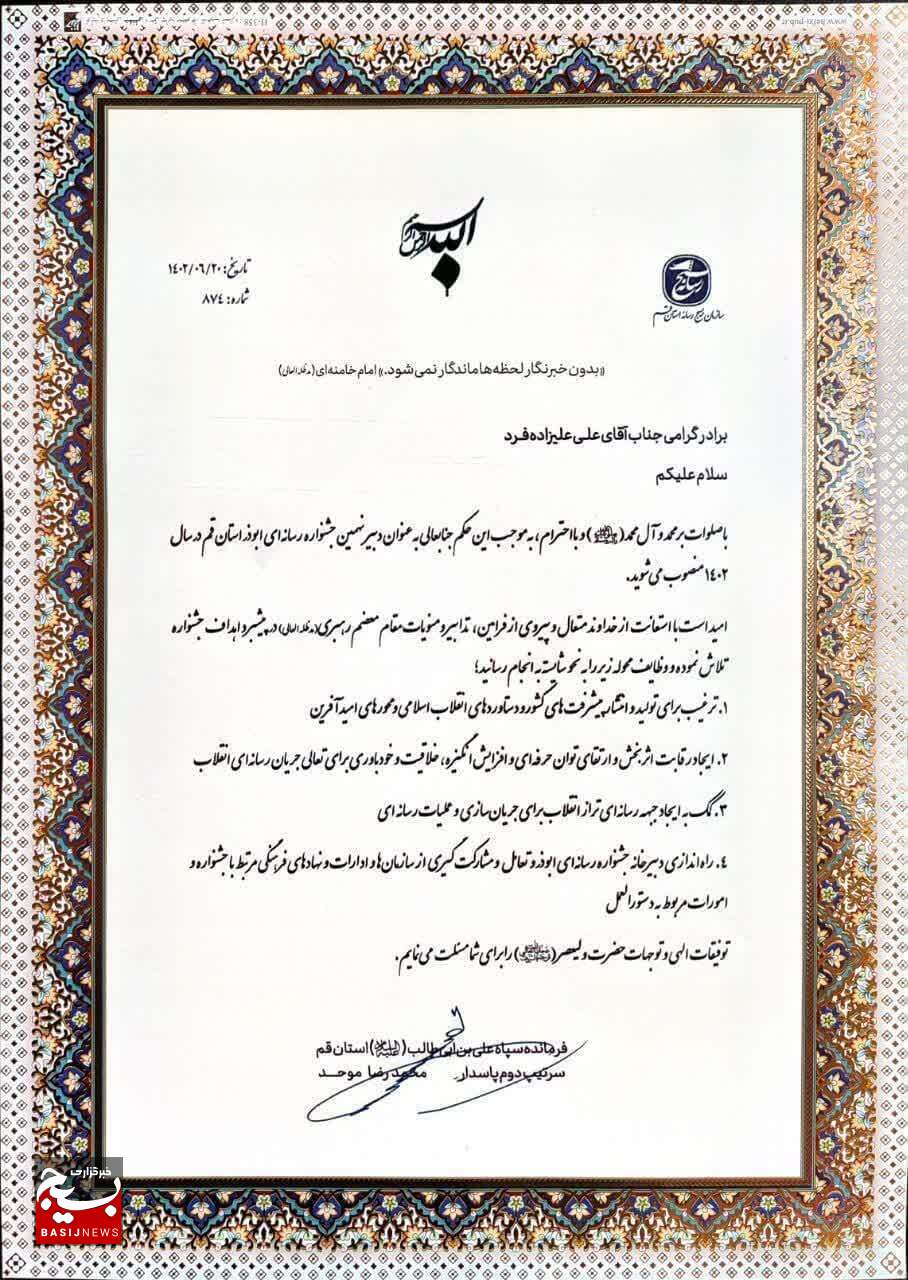 www.basij-pub.ir
بسم الله الرحمن الرحیم
تاریخ: ۱۴۰۲/۰۶/۲۰
شماره: ۸۷۴
سازمان بسیج رسانه استان قم
«بدون خبرنگار لحظه‌ها ماندگار نمی‌شود.» امام خامنه‌ای (مدظله العالی)
برادر گرامی جناب آقای علی علیزاده‌فرد
سلام علیکم
با صلوات بر محمد و آل محمد() و با احترام، به موجب این حکم جنابعالی به عنوان دبیر نهمین جشنواره رسانه‌ای ابوذر استان قم در سال
۱۴۰۲ منصوب می‌شوید.
امید است با استعانت از خداوند متعال و پیروی از فرامین، تدابیر و منویات مقام معضم رهبری (مدظله العالی) در پیشبرد اهداف جشنواره
تلاش نموده و وظایف محوله زیر را به نحو شایسته به انجام رسانید؛
۱. ترغیب برای تولید و انتشار پیشرفت‌های کشور و دستاوردهای انقلاب اسلامی و محورهای امیدآفرین
۲. ایجاد رقابت اثربخش و ارتقای توان حرفه‌ای و افزایش انگیزه، خلاقیت و خودباوری برای تعالی جریان رسانه‌ای انقلاب
۳. کمک به ایجاد جبهه رسانه‌ای تراز انقلاب برای جریان‌سازی و عملیات رسانه‌ای
۴. راه‌اندازی دبیرخانه جشنواره رسانه‌ای ابوذر و تعامل و مشارکت‌گیری از سازمان‌ها و ادارات و نهادهای فرهنگی مرتبط با جشنواره و
امورات مربوط به دستورالعمل
توفیقات الهی و توجهات حضرت ولیعصر() را برای شما مسئلت می‌نمایم.
فرمانده سپاه علی بن ابی‌طالب (علیه السلام) استان قم
سرتیپ دوم پاسدار محمدرضا موحد
خبرگزاری
بسیج
BASIJNEWS